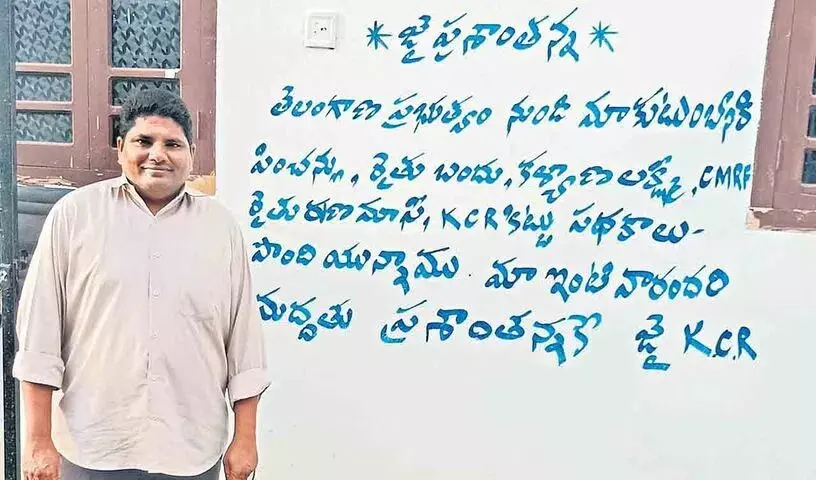 * జై ప్రశాంతన్న *
తెలంగాణ ప్రభుత్వం నుండి మా కుటుంబానికి
పింఛన్లు, రైతు బంధు, కళ్యాణ లక్ష్మి, CMRF
రైతు ఋణ మాఫీ, KCR కిట్టు పథకాలు -
పొంది యున్నాము. మా ఇంటి వారందరి
మద్దతు ప్రశాంతన్నకే జై K.C.R